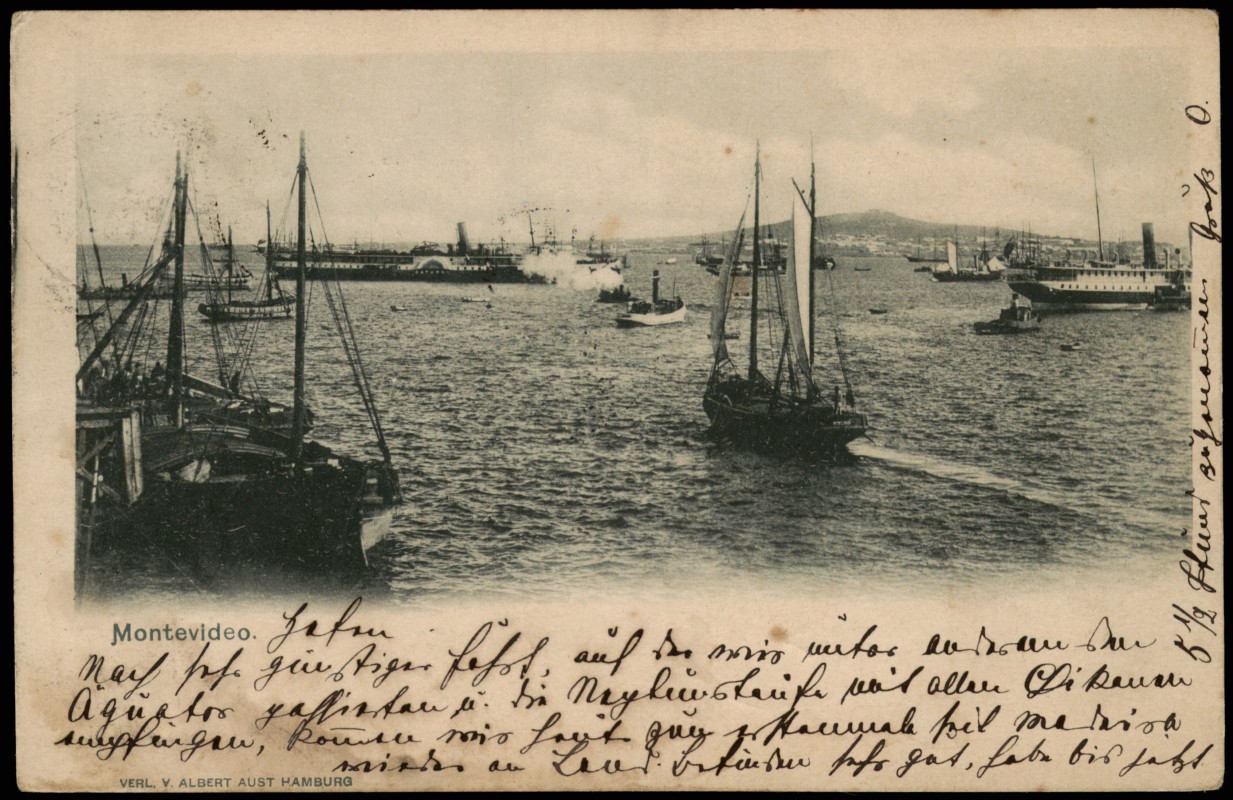 Montevideo. Hafen.
Nach sehr günstiger Fahrt, auf der wir unter anderem den
Äquator passierten u. die Neptunstaufe mit allen Chikanen
empfingen, kommen wir heut zum erstenmale seit Madeira
wieder an Land. Befinden sehr gut, habe bis jetzt
VERL. V. ALBERT AUST HAMBURG
5 1/2 Pfund zugenommen. Gruß O.